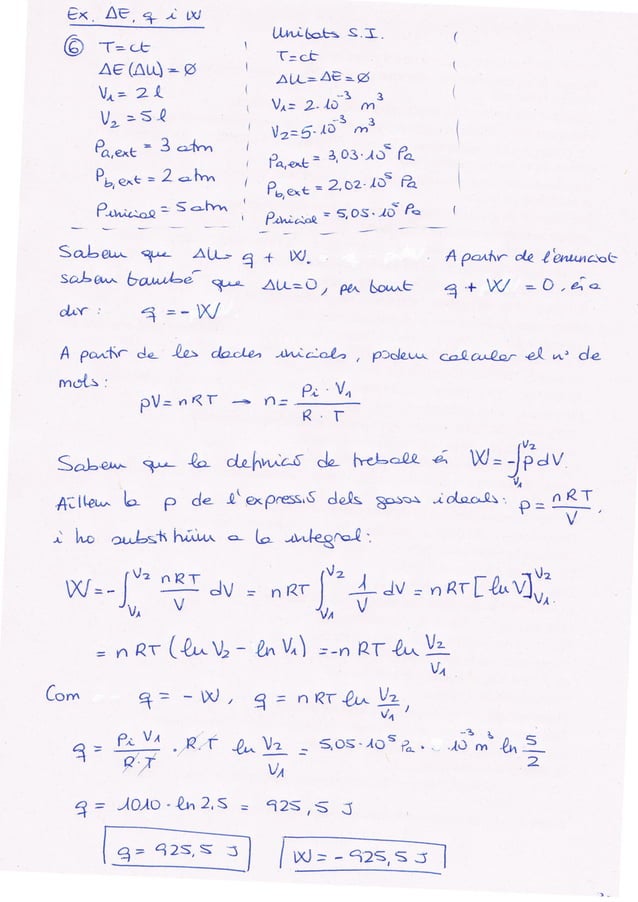 Ex. ΔE, q i W
⑥ T=ct
ΔE (ΔU) = Ø
V₁ = 2 l
V₂ = 5 l
Pa,ext = 3 atm
Pb,ext = 2 atm
Pinicial = 5 atm
Unitats S.I.
T=ct
ΔU = ΔE = Ø
V₁ = 2·10⁻³ m³
V₂ = 5·10⁻³ m³
Pa,ext = 3,03·10⁵ Pa
Pb,ext = 2,02·10⁵ Pa
Pinicial = 5,05·10⁵ Pa
Sabem que ΔU = q + W. A partir de l'enunciat
sabem també que ΔU=0, per tant q + W = 0, és a
dir: q = -W
A partir de les dades inicials, podem calcular el nº de
mols:
pV = nRT → n = Pi · V₁ / R · T
Sabem que la definició de treball és W = -∫V₁V₂ p dV.
Aïllem la p de l'expressió dels gasos ideals: p = nRT / V,
i ho substituïm a la integral:
W = -∫V₁V₂ nRT / V dV = nRT ∫V₁V₂ 1 / V dV = nRT [ln V]V₁V₂
= nRT (ln V₂ - ln V₁) = -nRT ln V₂ / V₁
Com q = -W, q = nRT ln V₂ / V₁,
q = Pi V₁ / R·T · R·T ln V₂ / V₁ = 5,05·10⁵ Pa · 10⁻³ m³ ln 5 / 2
q = 1010 · ln 2,5 = 925,5 J
q = 925,5 J W = -925,5 J